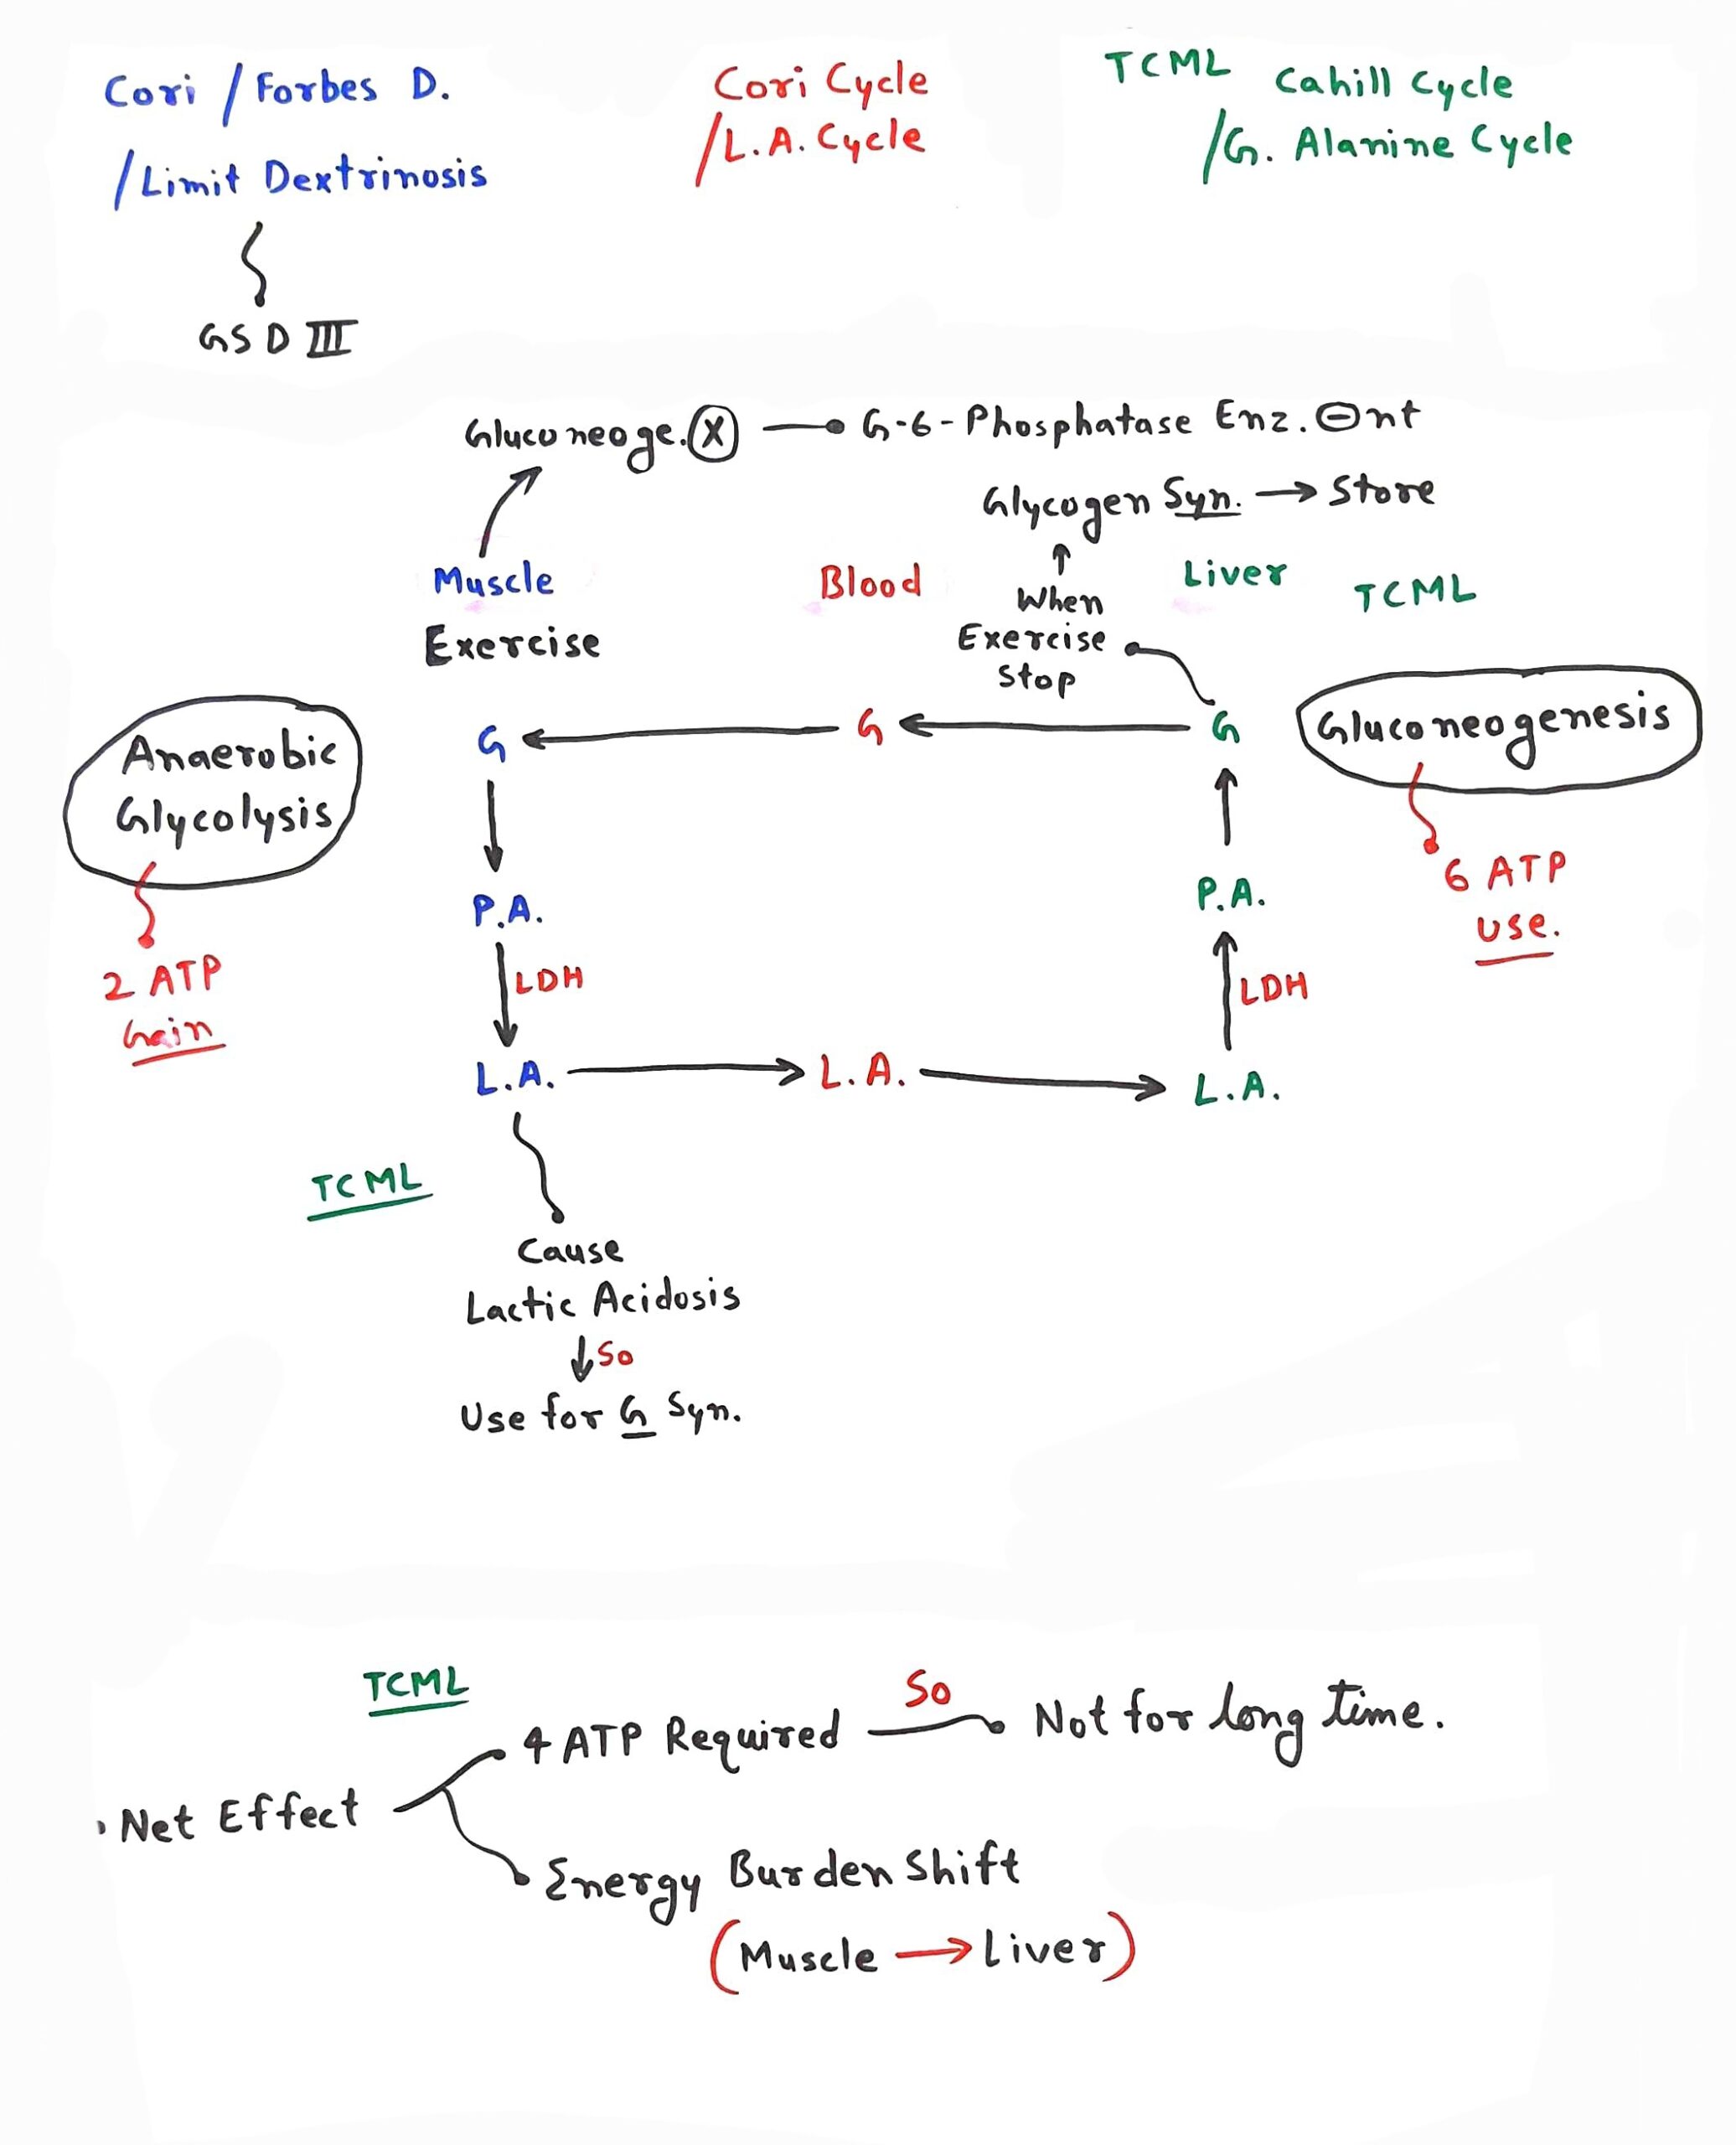 Cori / Forbes D.
/ Limit Dextrinosis
GSD III
Cori Cycle
/L.A. Cycle
TCML
Cahill Cycle
/G. Alanine Cycle
Gluconeoge. X
G-6-Phosphatase Enz. ⊖nt
Glycogen Syn. → Store
↑
When
Exercise
Stop
Muscle
Exercise
Blood
Liver
TCML
Anaerobic
Glycolysis
2 ATP
Gain
G ← G ← G
Gluconeogenesis
6 ATP
Use.
P.A.
P.A.
LDH
LDH
L.A. → L.A. → L.A.
TCML
Cause
Lactic Acidosis
↓ So
Use for G Syn.
TCML
• Net Effect
4 ATP Required
So
Not for long time.
Energy Burden Shift
(Muscle → Liver)